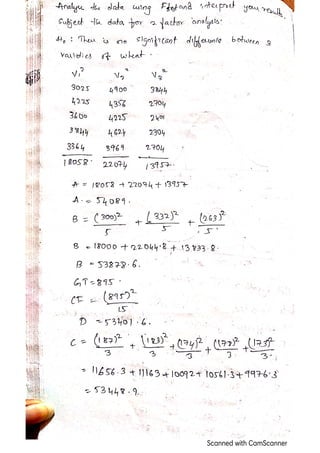 Analyse the data using F test and interpret your result.
Subject the data for 2 factor analysis.
H₀ : There is no significant difference between 3
varieties of wheat.
V₁² V₂² V₃²
3025 4900 3844
4225 4356 2704
3600 4225 2401
3844 4624 2304
3364 3969 2704
18058 22074 13957
A = 18058 + 22074 + 13957
A = 54089.
B = (300)²/5 + (332)²/5 + (263)²/5
B = 18000 + 22044.8 + 13833.8
B = 53878.6.
GT = 895
CF = (895)²/15
D = 53401.6.
C = (187)²/3 + (183)²/3 + (174)²/3 + (178)²/3 + (173)²/3
= 11656.3 + 11163 + 10092 + 10561.3 + 9976.3
= 53448.9.
Scanned with CamScanner